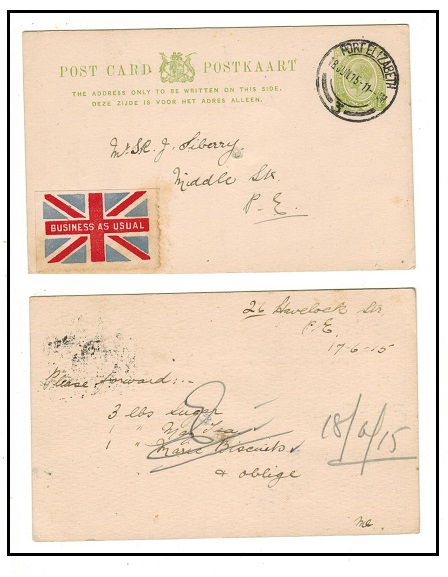 POST CARD POSTKAART
THE ADDRESS ONLY TO BE WRITTEN ON THIS SIDE.
DEZE ZIJDE IS VOOR HET ADRES ALLEEN.
PORT ELIZABETH
18 JUN 15 - 11
3
J. Siberry
Middle Str
P. E.
BUSINESS AS USUAL
26 Havelock Str
P.E.
17-6-15
Please forward:-
3 lbs Sugar
1 " Tea
1 " Marie Biscuits
& oblige
18/6/15